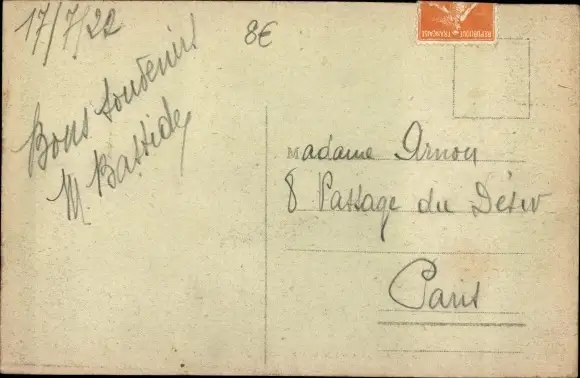 17/7/22
8€
Bons souvenirs
M. Bastide
REPUBLIQUE FRANÇAISE
Madame Arnou
8 Passage du Désir
Paris